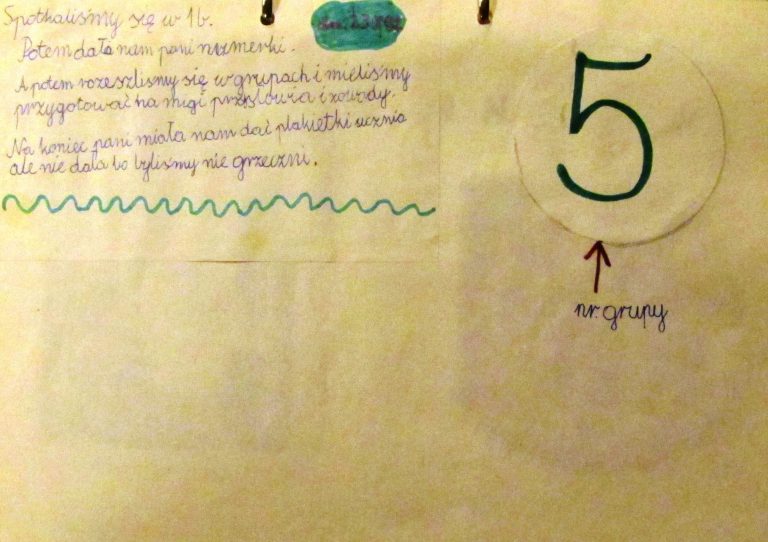 Spotkaliśmy się w 1b.
Potem dała nam pani numerki.
A potem rozeszlismy się w grupach i mieliśmy
przygotować na migi przysłowia i zawody.
Na koniec pani miała nam dać plakietki ucznia
ale nie dała bo byliśmy nie grzeczni.
5
nr. grupy